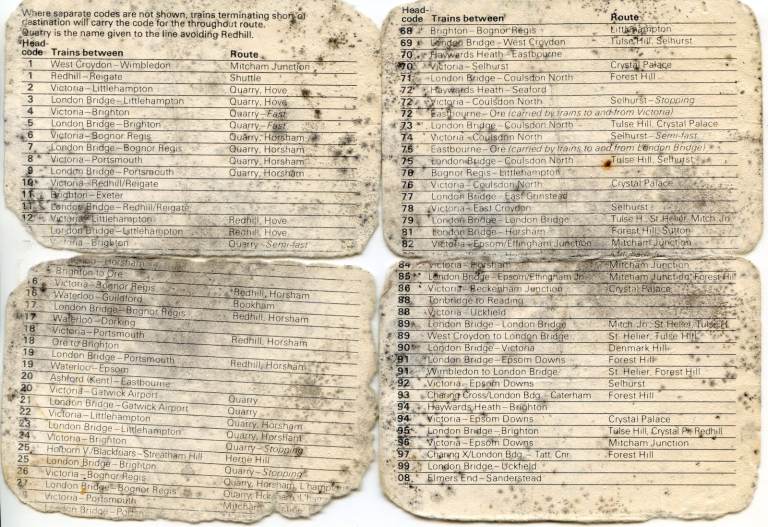 Where separate codes are not shown, trains terminating short of
destination will carry the code for the throughout route.
Quarry is the name given to the line avoiding Redhill.
Head-
code Trains between Route
1 West Croydon–Wimbledon Mitcham Junction
1 Redhill–Reigate Shuttle
2 Victoria–Littlehampton Quarry, Hove
3 London Bridge–Littlehampton Quarry, Hove
4 Victoria–Brighton Quarry–Fast
5 London Bridge–Brighton Quarry–Fast
6 Victoria–Bognor Regis Quarry, Horsham
7 London Bridge–Bognor Regis Quarry, Horsham
8 Victoria–Portsmouth Quarry, Horsham
9 London Bridge–Portsmouth Quarry, Horsham
10 Victoria–Redhill/Reigate
11 Brighton–Exeter
11 London Bridge–Redhill/Reigate
12 Victoria–Littlehampton Redhill, Hove
London Bridge–Littlehampton Redhill, Hove
Victoria–Brighton Quarry–Semi-fast
Horsham
Brighton to Ore
6 Victoria–Bognor Regis Redhill, Horsham
16 Waterloo–Guildford Bookham
17 London Bridge–Bognor Regis Redhill, Horsham
17 Waterloo–Dorking
18 Victoria–Portsmouth Redhill, Horsham
18 Ore to Brighton
19 London Bridge–Portsmouth Redhill, Horsham
19 Waterloo–Epsom
20 Ashford (Kent)–Eastbourne
20 Victoria–Gatwick Airport Quarry
21 London Bridge–Gatwick Airport Quarry
22 Victoria–Littlehampton Quarry, Horsham
23 London Bridge–Littlehampton Quarry, Horsham
24 Victoria–Brighton Quarry–Stopping
25 Holborn V/Blackfriars–Streatham Hill Herne Hill
25 London Bridge–Brighton Quarry–Stopping
26 Victoria–Bognor Regis Quarry, Horsham, L'hampton
27 London Bridge–Bognor Regis Quarry, Horsham, L'hampton
Victoria–Portsmouth Mitcham
London Bridge
Head-
code Trains between Route
68 Brighton–Bognor Regis Littlehampton
69 London Bridge–West Croydon Tulse Hill, Selhurst
70 Haywards Heath–Eastbourne
70 Victoria–Selhurst Crystal Palace
71 London Bridge–Coulsdon North Forest Hill
72 Haywards Heath–Seaford
72 Victoria–Coulsdon North Selhurst–Stopping
72 Eastbourne–Ore (carried by trains to and from Victoria)
73 London Bridge–Coulsdon North Tulse Hill, Crystal Palace
74 Victoria–Coulsdon North Selhurst–Semi-fast
75 Eastbourne–Ore (carried by trains to and from London Bridge)
75 London Bridge–Coulsdon North Tulse Hill, Selhurst
76 Bognor Regis–Littlehampton
76 Victoria–Coulsdon North Crystal Palace
77 London Bridge–East Grinstead
78 Victoria–East Croydon Selhurst
79 London Bridge–London Bridge Tulse H, St Helier, Mitch Jn
81 London Bridge–Horsham Forest Hill, Sutton
82 Victoria–Epsom/Effingham Junction Mitcham Junction
84 Victoria–Horsham Mitcham Junction
85 London Bridge–Epsom/Effingham Jn Mitcham Junction, Forest Hill
86 Victoria–Beckenham Junction Crystal Palace
88 Tonbridge to Reading
88 Victoria–Uckfield
89 London Bridge–London Bridge Mitch Jn, St Helier, Tulse H
89 West Croydon to London Bridge St Helier, Tulse Hill
90 London Bridge–Victoria Denmark Hill
91 London Bridge–Epsom Downs Forest Hill
91 Wimbledon to London Bridge St Helier, Forest Hill
92 Victoria–Epsom Downs Selhurst
93 Charing Cross/London Bdg–Caterham Forest Hill
94 Haywards Heath–Brighton
94 Victoria–Epsom Downs Crystal Palace
95 London Bridge–Brighton Tulse Hill, Crystal Pl, Redhill
96 Victoria–Epsom Downs Mitcham Junction
97 Charing X/London Bdg–Tatt. Cnr. Forest Hill
99 London Bridge–Uckfield
08 Elmers End–Sanderstead